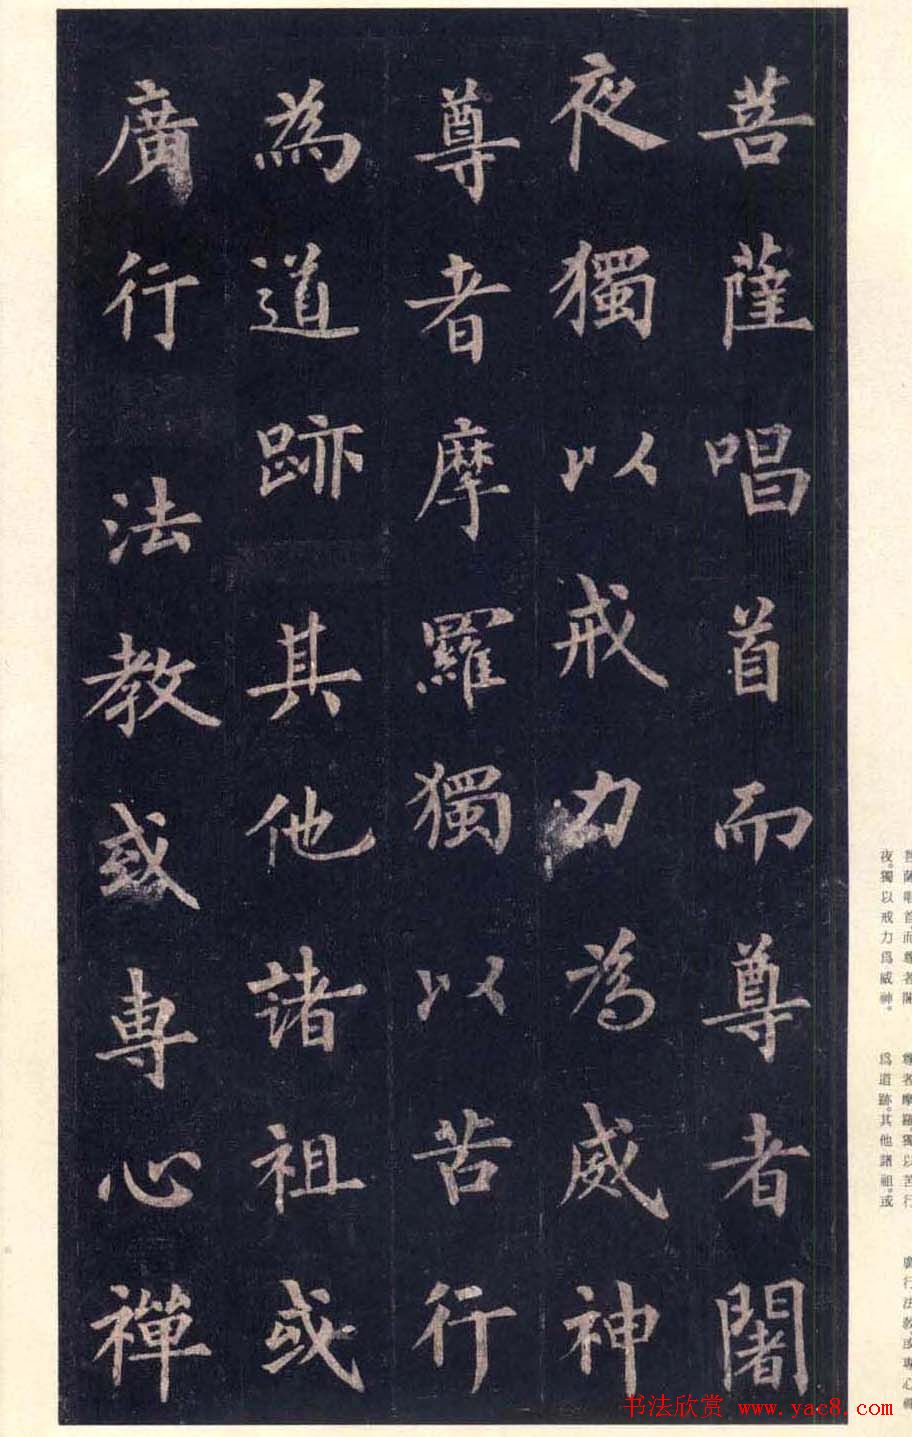 菩薩唱首而尊者闍
夜獨以戒力為威神
尊者摩羅獨以苦行
為道跡其他諸祖或
廣行法教或專心禪
菩薩唱首而尊者闍
夜。獨以戒力爲威神。
尊者摩羅獨以苦行
爲道跡。其他諸祖。或
廣行法教或專心禪
书法欣赏 www.yac8.com